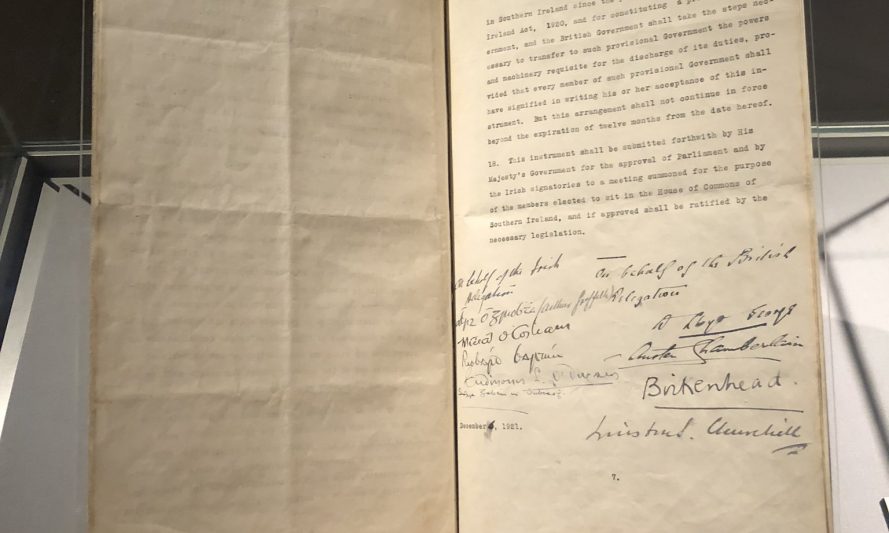 in Southern Ireland since the
Ireland Act, 1920, and for constituting a
ernment, and the British Government shall take the steps nec-
essary to transfer to such provisional Government the powers
and machinery requisite for the discharge of its duties, pro-
vided that every member of such provisional Government shall
have signified in writing his or her acceptance of this in-
strument. But this arrangement shall not continue in force
beyond the expiration of twelve months from the date hereof.
18. This instrument shall be submitted forthwith by His
Majesty's Government for the approval of Parliament and by
the Irish signatories to a meeting summoned for the purpose
of the members elected to sit in the House of Commons of
Southern Ireland, and if approved shall be ratified by the
necessary legislation.
behalf of the Irish
Delegation
(Arthur Griffith)
On behalf of the British
Delegation
D Lloyd George
Austen Chamberlain
Birkenhead.
Winston S. Churchill
December 6, 1921.
7.